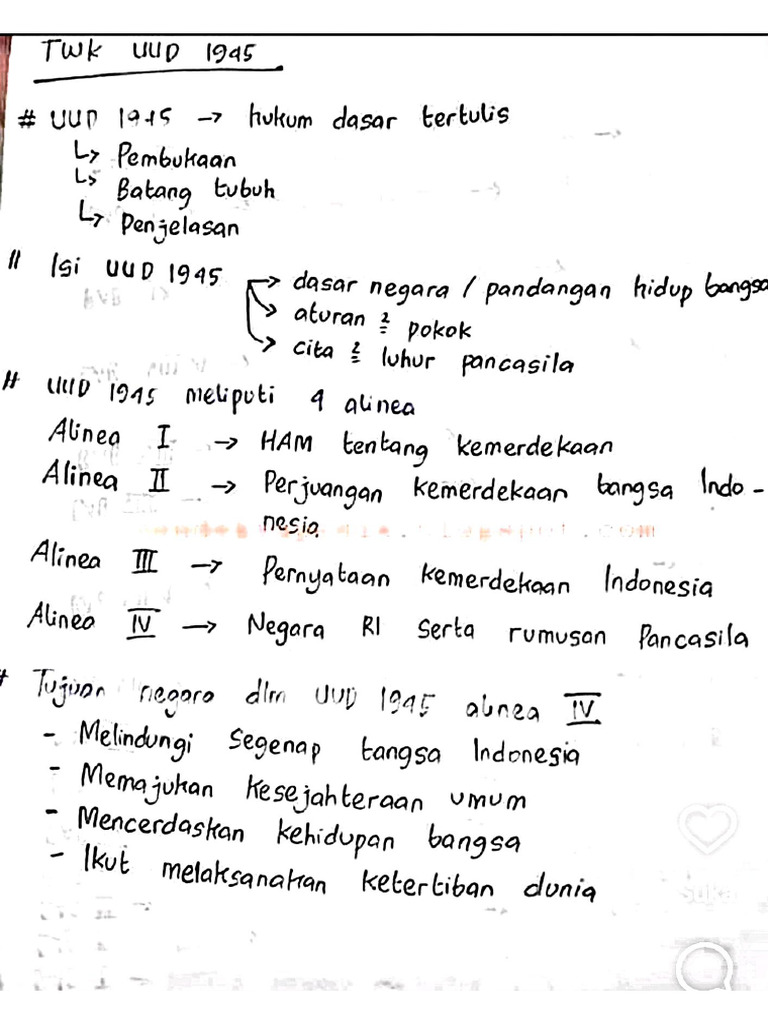 TWK UUD 1945
# UUD 1945 → hukum dasar tertulis
↳ Pembukaan
↳ Batang tubuh
↳ Penjelasan
# Isi UUD 1945 → dasar negara / pandangan hidup bangsa
→ aturan 2 pokok
→ cita 2 luhur pancasila
# UUD 1945 meliputi 4 alinea
Alinea I → HAM tentang kemerdekaan
Alinea II → Perjuangan kemerdekaan bangsa Indo-
nesia
Alinea III → Pernyataan kemerdekaan Indonesia
Alinea IV → Negara RI serta rumusan Pancasila
# Tujuan negara dlm UUD 1945 alinea IV
- Melindungi segenap bangsa Indonesia
- Memajukan kesejahteraan umum
- Mencerdaskan kehidupan bangsa
- Ikut melaksanakan ketertiban dunia